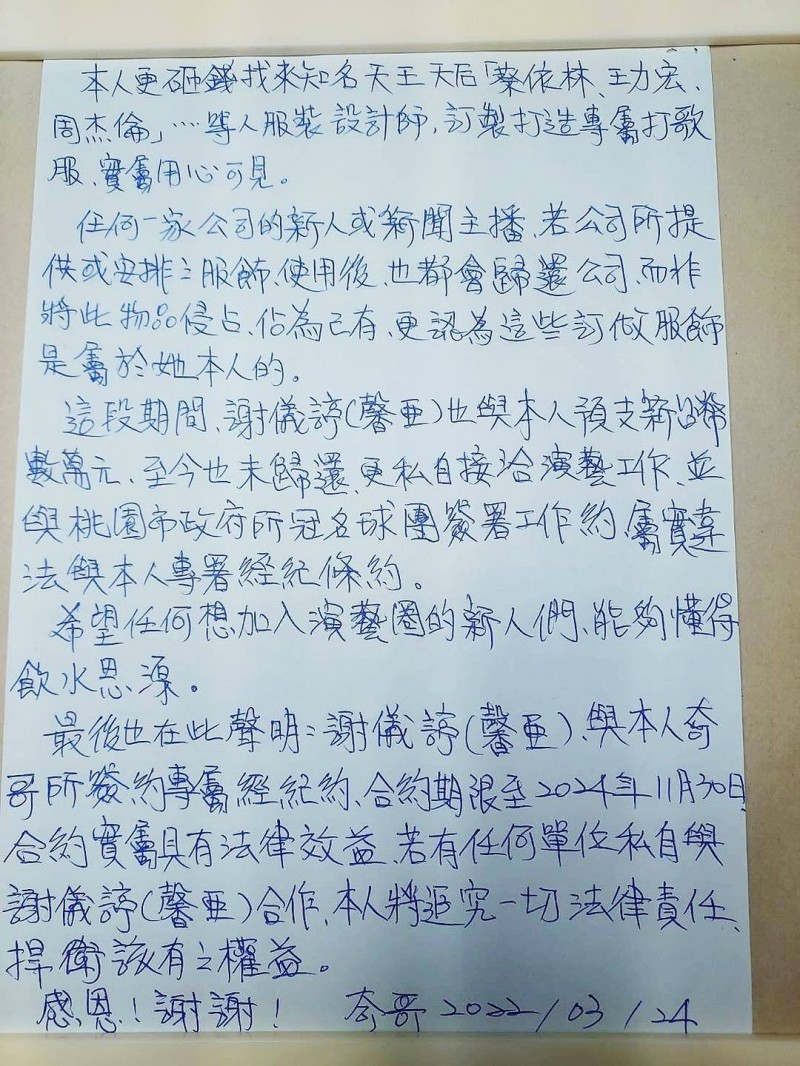 本人更砸錢找來知名天王天后「蔡依林、王力宏、
周杰倫」…等人服裝設計師,訂製打造專屬打歌
服、實屬用心可見。
任何一家公司的新人或新聞主播、若公司所提
供或安排之服飾、使用後、也都會歸還公司、而非
將此物品侵占、佔為己有、更認為這些訂做服飾
是屬於她本人的。
這段期間、謝儀諄(馨亞)也與本人預支新台幣
數萬元、至今也未歸還、更私自接洽演藝工作、並
與桃園市政府所冠名球團簽署工作約、屬實違
法與本人專署經紀條約。
希望任何想加入演藝圈的新人們、能夠懂得
飲水思源。
最後也在此聲明:謝儀諄(馨亞)、與本人奇
哥所簽約專屬經紀約、合約期限至2024年11月30日
合約實屬具有法律效益、若有任何單位私自與
謝儀諄(馨亞)合作、本人將追究一切法律責任、
捍衛該有之權益。
感恩!謝謝! 奇哥 2022/03/24